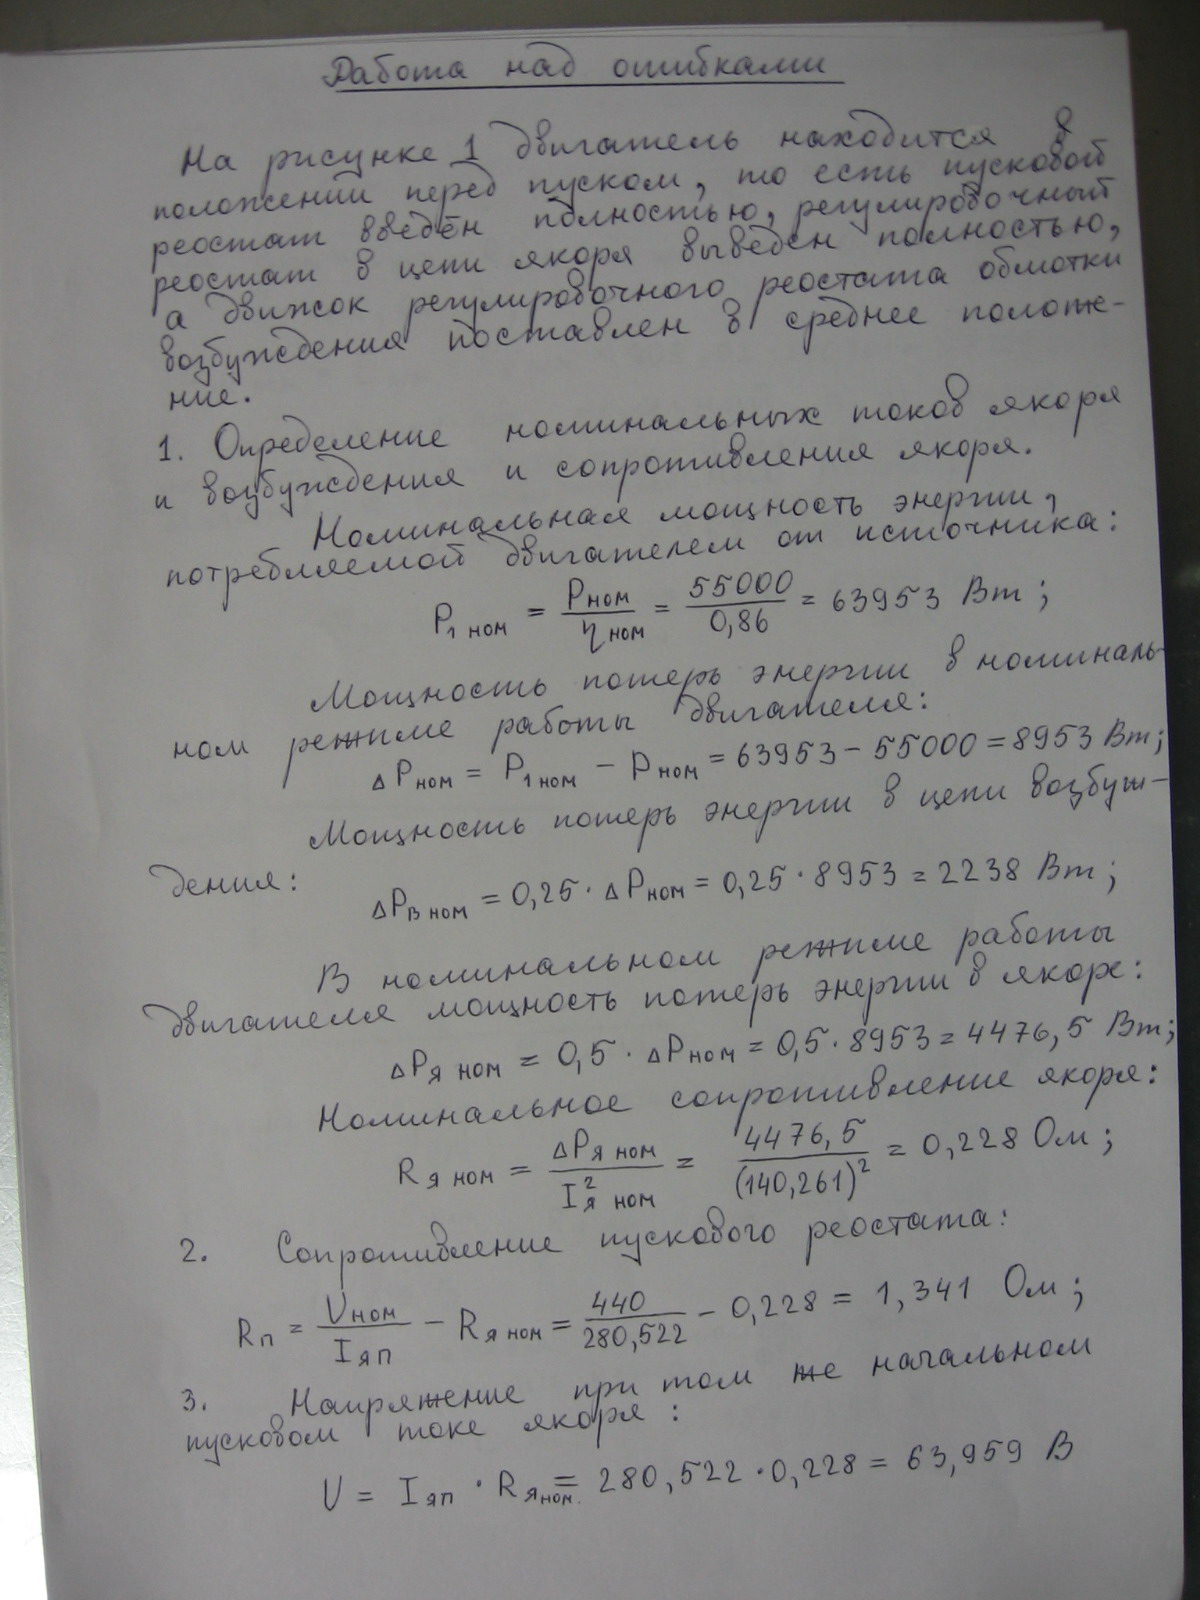 Работа над ошибками
На рисунке 1 двигатель находится в
положении перед пуском, то есть пусковой
реостат введён полностью, регулировочный
реостат в цепи якоря выведен полностью,
а движок регулировочного реостата обмотки
возбуждения поставлен в среднее положе-
ние.
1. Определение номинальных токов якоря
и возбуждения и сопротивления якоря.
Номинальная мощность энергии,
потребляемой двигателем от источника:
P₁ ном = Pном / ηном = 55000 / 0,86 = 63953 Вт;
Мощность потерь энергии в номиналь-
ном режиме работы двигателя:
ΔPном = P₁ ном − Pном = 63953 − 55000 = 8953 Вт;
Мощность потерь энергии в цепи возбуж-
дения:
ΔPв ном = 0,25 · ΔPном = 0,25 · 8953 = 2238 Вт;
В номинальном режиме работы
двигателя мощность потерь энергии в якоре:
ΔPя ном = 0,5 · ΔPном = 0,5 · 8953 = 4476,5 Вт;
Номинальное сопротивление якоря:
Rя ном = ΔPя ном / I²я ном = 4476,5 / (140,261)² = 0,228 Ом;
2. Сопротивление пускового реостата:
Rп = Uном / Iяп − Rя ном = 440 / 280,522 − 0,228 = 1,341 Ом;
3. Напряжение при том же начальном
пусковом токе якоря:
U = Iяп · Rя ном. = 280,522 · 0,228 = 63,959 В